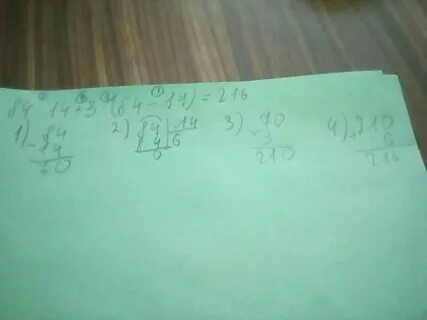 84 : 14 + 3 · (84 - 14) = 216
1) 84 2) 84 | 14 3) 70 4) 210
- 14 84 | 6 · 3 + 6
70 0 210 216